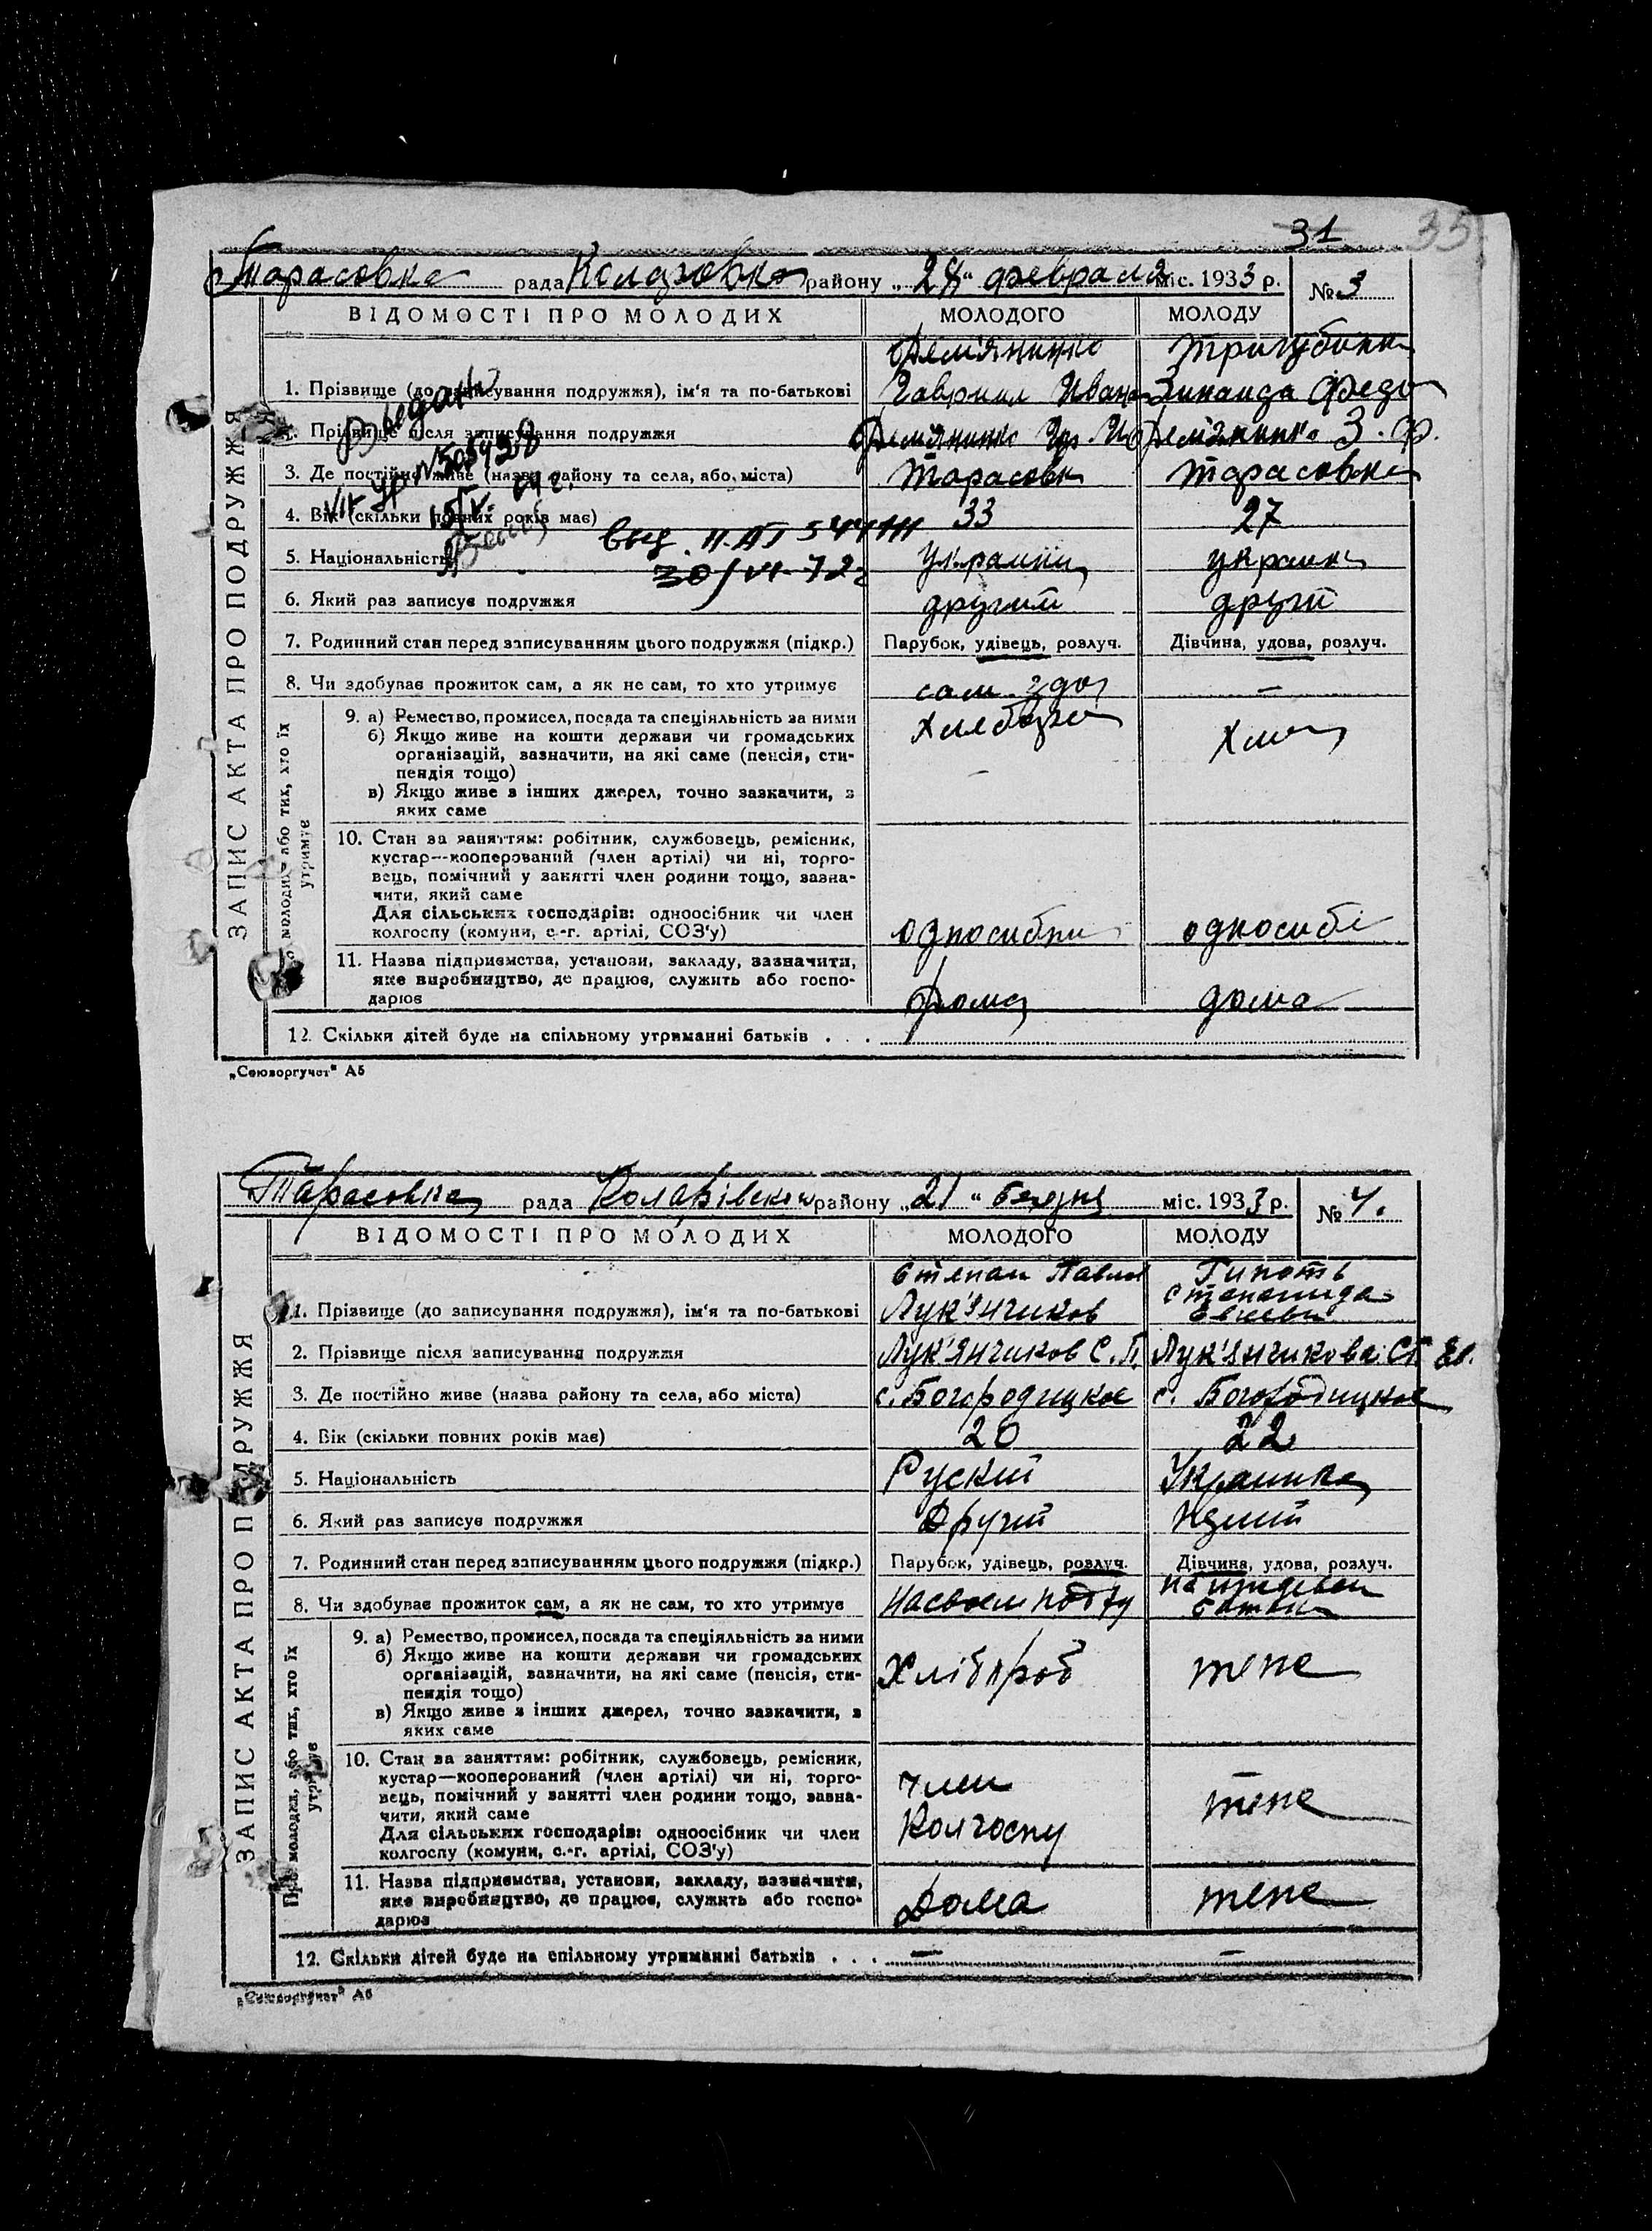 31 35
Тарасовка рада района „24“ февраля міс. 1933 р. № 3
ВІДОМОСТІ ПРО МОЛОДИХ МОЛОДОГО МОЛОДУ
ЗАПИС АКТА ПРО ПОДРУЖЖЯ
Дем'яненко
1. Прізвище (до записування подружжя), ім'я та по-батькові Гавриил Ивано Зинаида Федо
2. Прізвище після записування подружжя З. Ф.
3. Де постійно живе (назва району та села, або, міста) Тарасовк Тарасовка
4. Вік (скільки повних років має) 33 27
5. Національність украин украинк
30/VI-72г
6. Який раз записує подружжя другий другий
7. Родинний стан перед записуванням цього подружжя (підкр.) Парубок, удівець, розлуч. Дівчина, удова, розлуч.
8. Чи здобуває прожиток сам, а як не сам, то хто утримує сам –
молодих або тих, хто їх утримує
9. а) Ремество, промисел, посада та спеціяльність за ними
б) Якщо живе на кошти держави чи громадських
організацій, зазначити, на які саме (пенсія, сти-
пендія тощо)
в) Якщо живе з інших джерел, точно зазначити, з
яких саме
10. Стан за заняттям: робітник, службовець, ремісник,
кустар—кооперований (член артілі) чи ні, торго-
вець, помічний у занятті член родини тощо, зазна-
чити, який саме
Для сільських господарів: одноосібник чи член
колгоспу (комуни, с.-г. артілі, СОЗ'у) односибни односибі
11. Назва підприємства, установи, закладу, зазначити,
яке виробництво, де працює, служить або госпо-
дарює дома дома
12. Скільки дітей буде на спільному утриманні батьків . . .
„Союзоргучет“ А5
Тарасовка рада района „21“ березня міс. 1933 р. № 4.
ВІДОМОСТІ ПРО МОЛОДИХ МОЛОДОГО МОЛОДУ
ЗАПИС АКТА ПРО ПОДРУЖЖЯ
Степан Павл Гипоть
1. Прізвище (до записування подружжя), ім'я та по-батькові Лук'янчиков Степанида
2. Прізвище після записування подружжя Лук'янчиков С. П. Лук'янчикова Ст. Ев.
3. Де постійно живе (назва району та села, або міста) с. Богородицкое с. Богородицкое
4. Вік (скільки повних років має) 20 22
5. Національність Руский Украинка
6. Який раз записує подружжя Другий
7. Родинний стан перед записуванням цього подружжя (підкр.) Парубок, удівець, розлуч. Дівчина, удова, розлуч.
8. Чи здобуває прожиток сам, а як не сам, то хто утримує
Про молодих, або тих, хто їх утримує
9. а) Ремество, промисел, посада та спеціяльність за ними
б) Якщо живе на кошти держави чи громадських
організацій, зазначити, на які саме (пенсія, сти-
пендія тощо) Хлібороб тепе
в) Якщо живе з інших джерел, точно зазначити, з
яких саме
10. Стан за заняттям: робітник, службовець, ремісник,
кустар—кооперований (член артілі) чи ні, торго-
вець, помічний у занятті член родини тощо, зазна- член тепе
чити, який саме колгоспу
Для сільських господарів: одноосібник чи член
колгоспу (комуни, с.-г. артілі, СОЗ'у)
11. Назва підприємства, установи, закладу, зазначити,
яке виробництво, де працює, служить або госпо- Дома тепе
дарює
12. Скільки дітей буде на спільному утриманні батьків . . . – –
„Союзоргучет“ А5